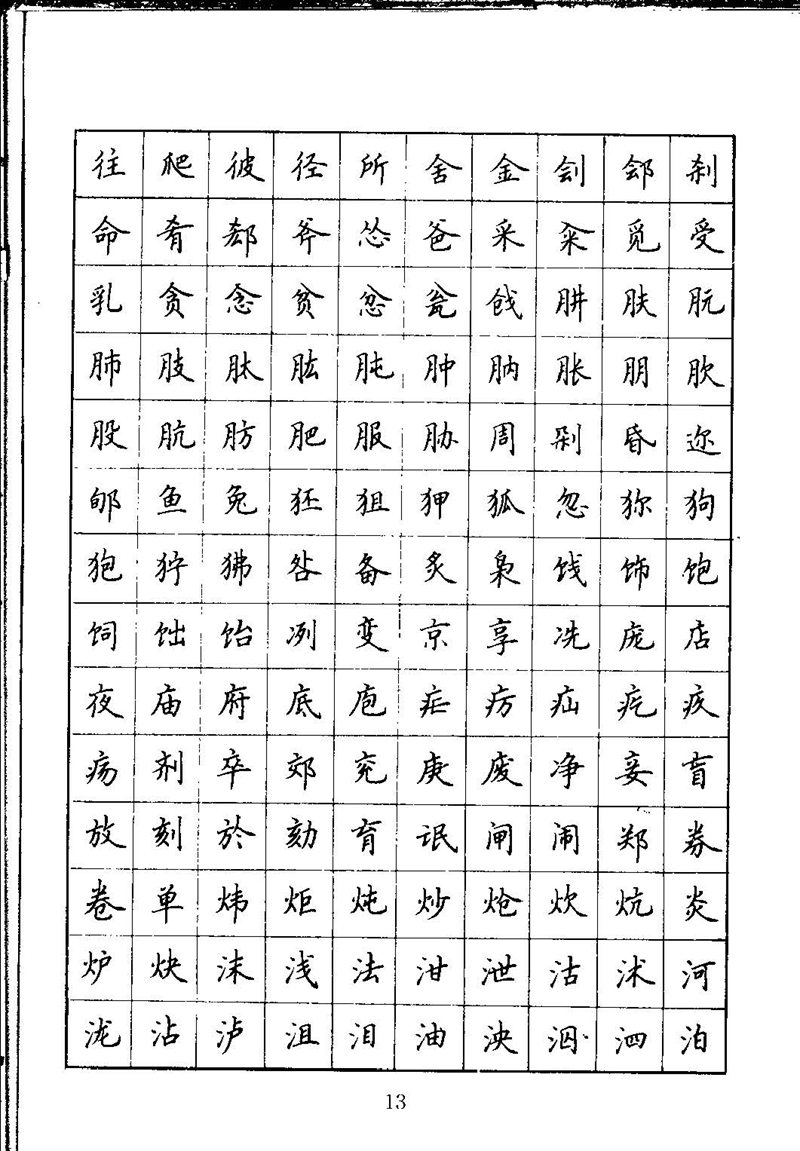 往爬彼径所舍金刽郐刹
命肴郄斧怂爸采籴觅受
乳贪念贫忿瓮戗肼肤朊
肺肢肽肱肫肿肭胀朋肷
股肮肪肥服胁周剁昏迩
郇鱼兔狉狙狎狐忽狝狗
狍狞狒咎备炙枭饯饰饱
饲饳饴冽变京享冼庞店
夜庙府底庖疟疠疝疙疚
疡剂卒郊兖庚废净妾盲
放刻於劾育氓闸闹郑券
卷单炜炬炖炒炝炊炕炎
炉炔沫浅法泔泄沽沭河
泷沾泸沮泪油泱泅泗泊
13